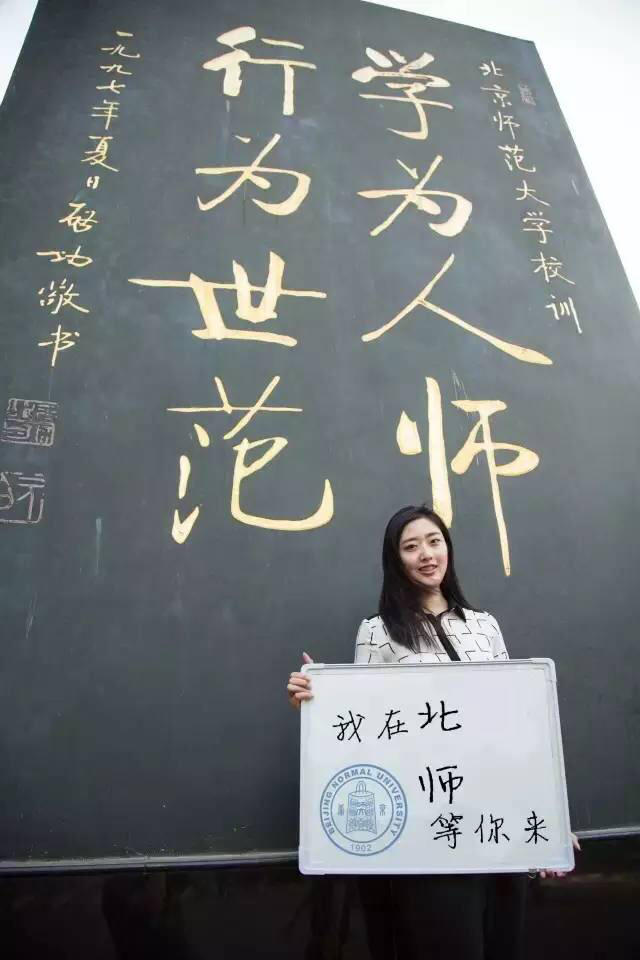 北京师范大学校训
学为人师
行为世范
一九九七年夏日启功敬书
我在北
师
等你来
BEIJING NORMAL UNIVERSITY
1902